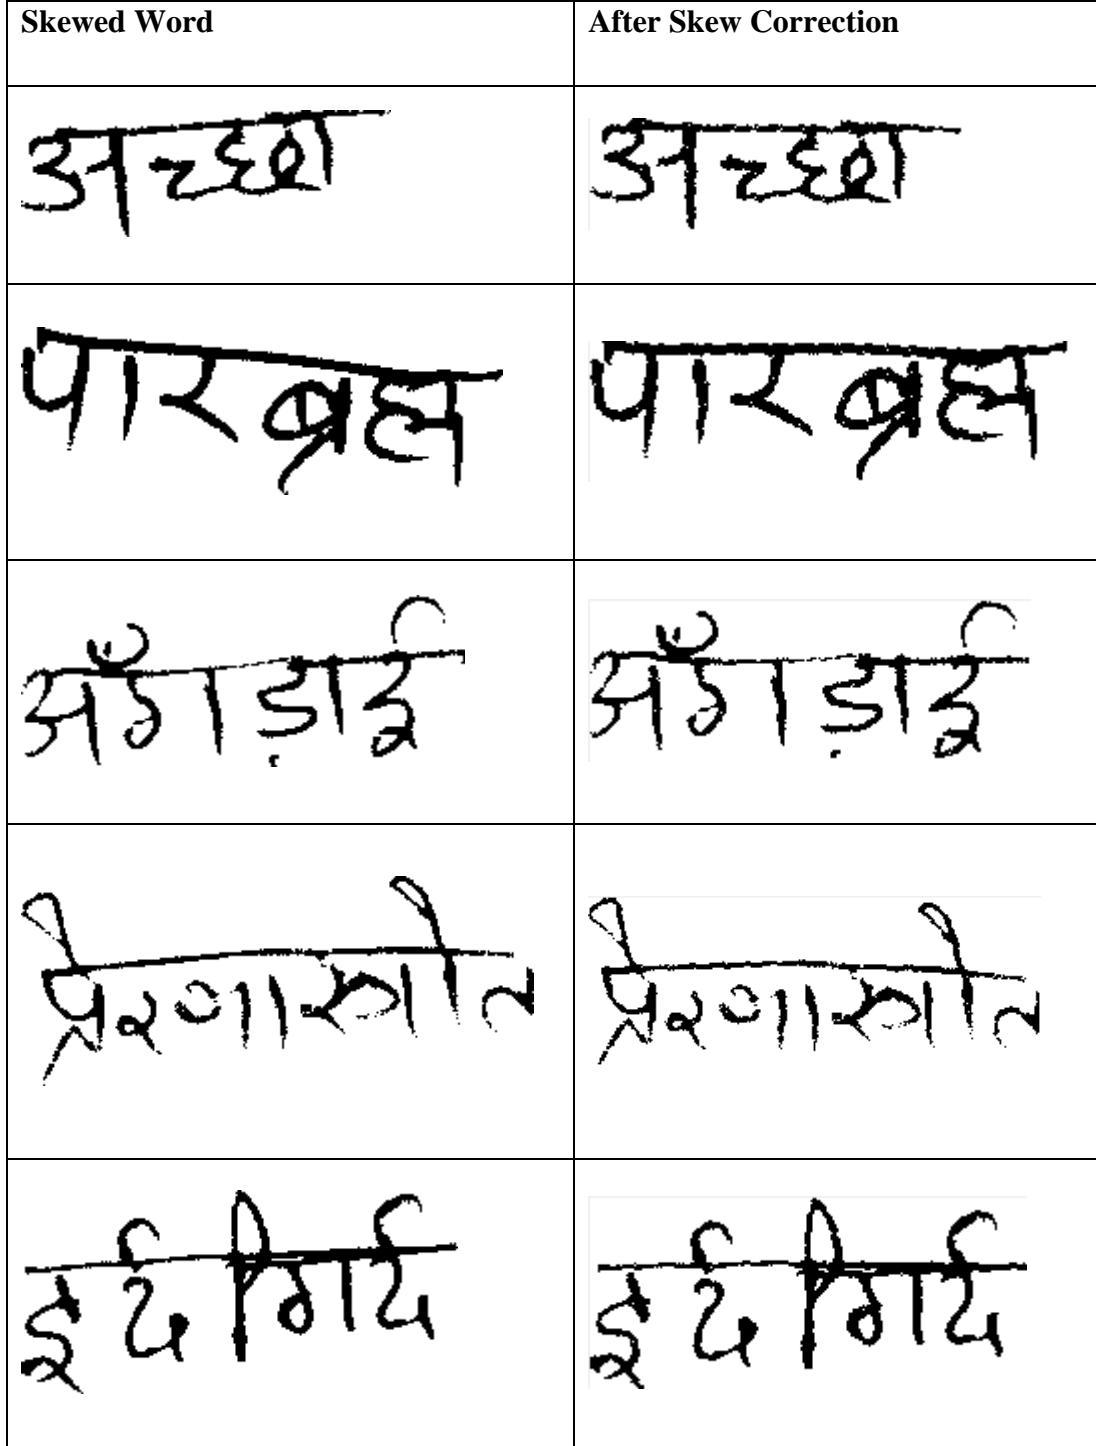 Skewed Word After Skew Correction
अच्छा अच्छा
पारब्रह्म पारब्रह्म
अँगड़ाई अँगड़ाई
प्रेरणास्त्रोत प्रेरणास्त्रोत
इर्द गिर्द इर्द गिर्द